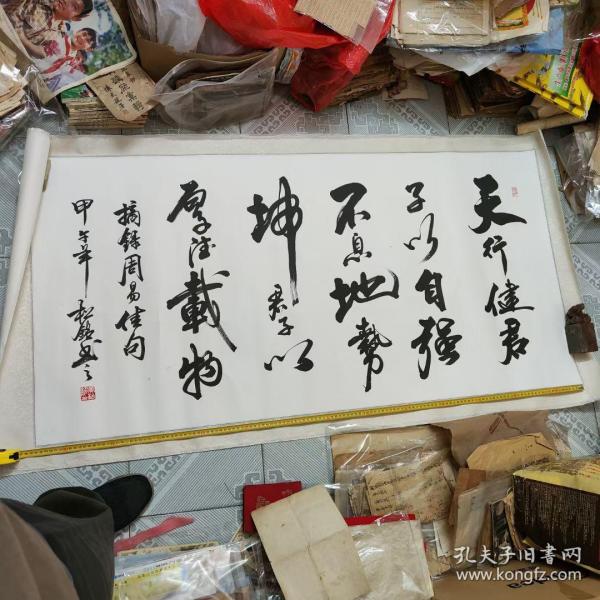 天行健君
子以自强
不息地势
坤君子以
厚德載物
摘錄周易佳句
甲午年
孔夫子旧書网
www.kongfz.com